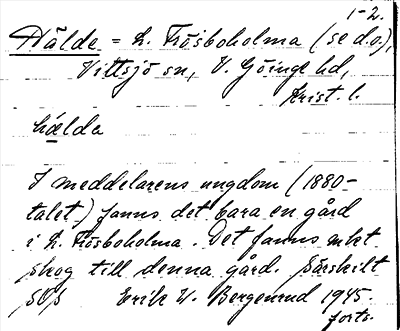 1-2.
Hälde = L. Frösboholma (se d.o.),
Vittsjö sn, V. Göinge hd,
Krist. l.
hælda
I meddelarens ungdom (1880-
talet) fanns det bara en gård
i L. Frösboholma. Det fanns enkt
skog till denna gård. Särskilt
Erik W. Bergenrud 1945.
forts.